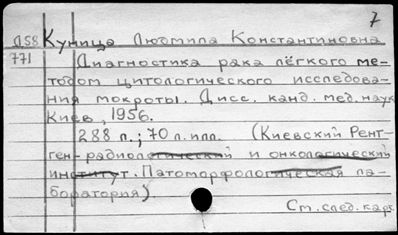 7
Д58 Куница Людмила Константиновна
771 Диагностика рака лёгкого ме-
тодом цитологического исследова-
ния мокроты. Дисс. канд. мед. наук
Киев, 1956.
288 л.; 70 л. илл. (Киевский Рент-
ген-радиологический и онкологический
институт. Патоморфологическая ла-
боратория)
См. след. карт